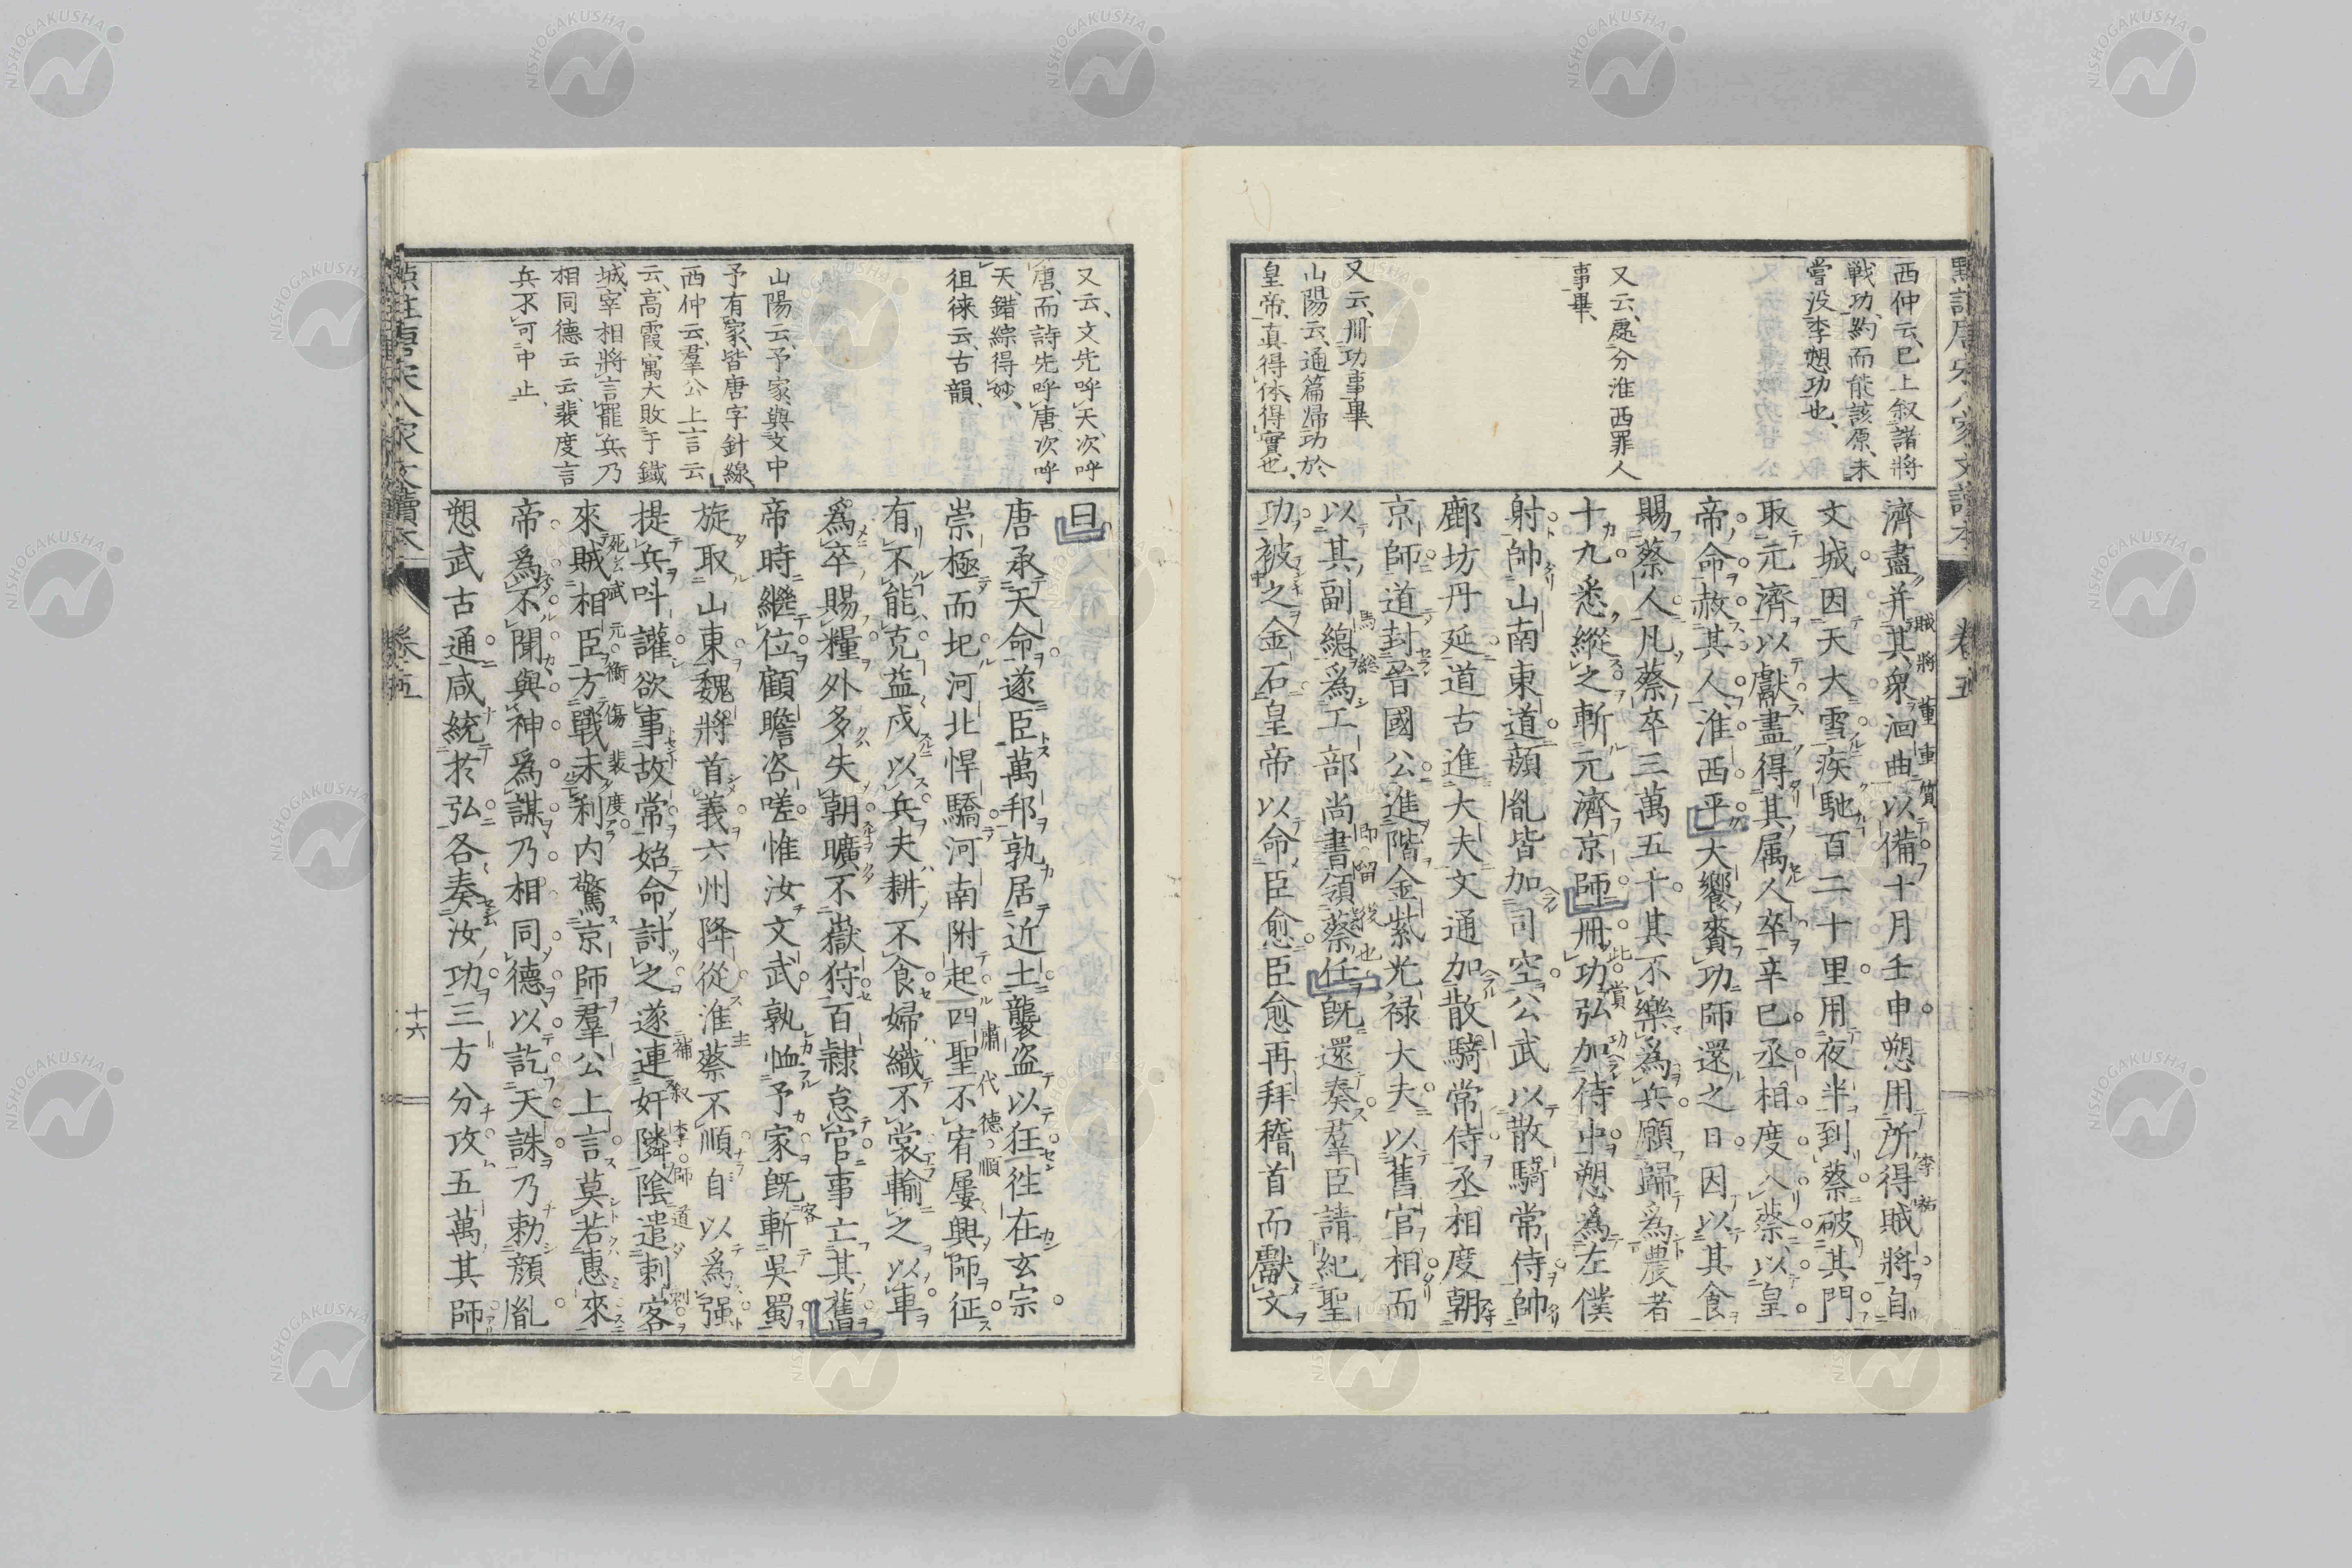 西仲云、已上叙諸將
戰功、約而能該原、未
嘗没李愬功也、
又云、處分淮西罪人
事畢、
又云、冊功事畢、
山陽云、通篇歸功於
皇帝、真得体、得實也、
濟盡并其衆洄曲以備十月壬申愬用所得賊將自
賊將董重質
李祐
文城因天大雪疾馳百二十里用夜半到蔡破其門
取元濟以獻盡得其属人卒辛巳丞相度入蔡以皇
帝命赦其人淮西平大饗賚功師還之日因以其食
賜蔡人凡蔡卒三萬五千其不樂爲兵願歸爲農者
十九悉縱之斬元濟京師冊功弘加侍中愬爲左僕
此賞功
射帥山南東道顔胤皆加司空公武以散騎常侍帥
鄜坊丹延道古進大夫文通加散騎常侍丞相度朝
京師道封晉國公進階金紫光禄大夫以舊官相而
以其副總爲工部尚書領蔡任既還奏羣臣請紀聖
馬總
功被之金石皇帝以命臣愈臣愈再拜稽首而獻文
卷五
又云、文先呼天、次呼
唐、而詩先呼唐、次呼
天、錯綜得妙、
徂徠云、古韻、
山陽云、予家、與文中
予有家、皆唐字針線、
西仲云、羣公上言云
云、高霞寓大敗于鐵
城、宰相將言罷兵乃
相同德云云、裴度言
兵不可中止、
曰
唐承天命遂臣萬邦孰居近土襲盗以狂往在玄宗
崇極而圯河北悍驕河南附起四聖不宥屢興師征
肅代德順
有不能克益戍以兵夫耕不食婦織不裳輸之以車
爲卒賜糧外多失朝曠不嶽狩百隷怠官事亡其舊
帝時繼位顧瞻咨嗟惟汝文武孰恤予家既斬吳蜀
旋取山東魏將首義六州降從淮蔡不順自以爲强
提兵呌讙欲事故常始命討之遂連奸隣陰遣刺客
李師道
來賊相臣方戰未利内驚京師羣公上言莫若惠來
死武元衡傷裴度
帝爲不聞與神爲謀乃相同德以訖天誅乃勅顔胤
愬武古通咸統於弘各奏汝功三方分攻五萬其師
卷五
十六